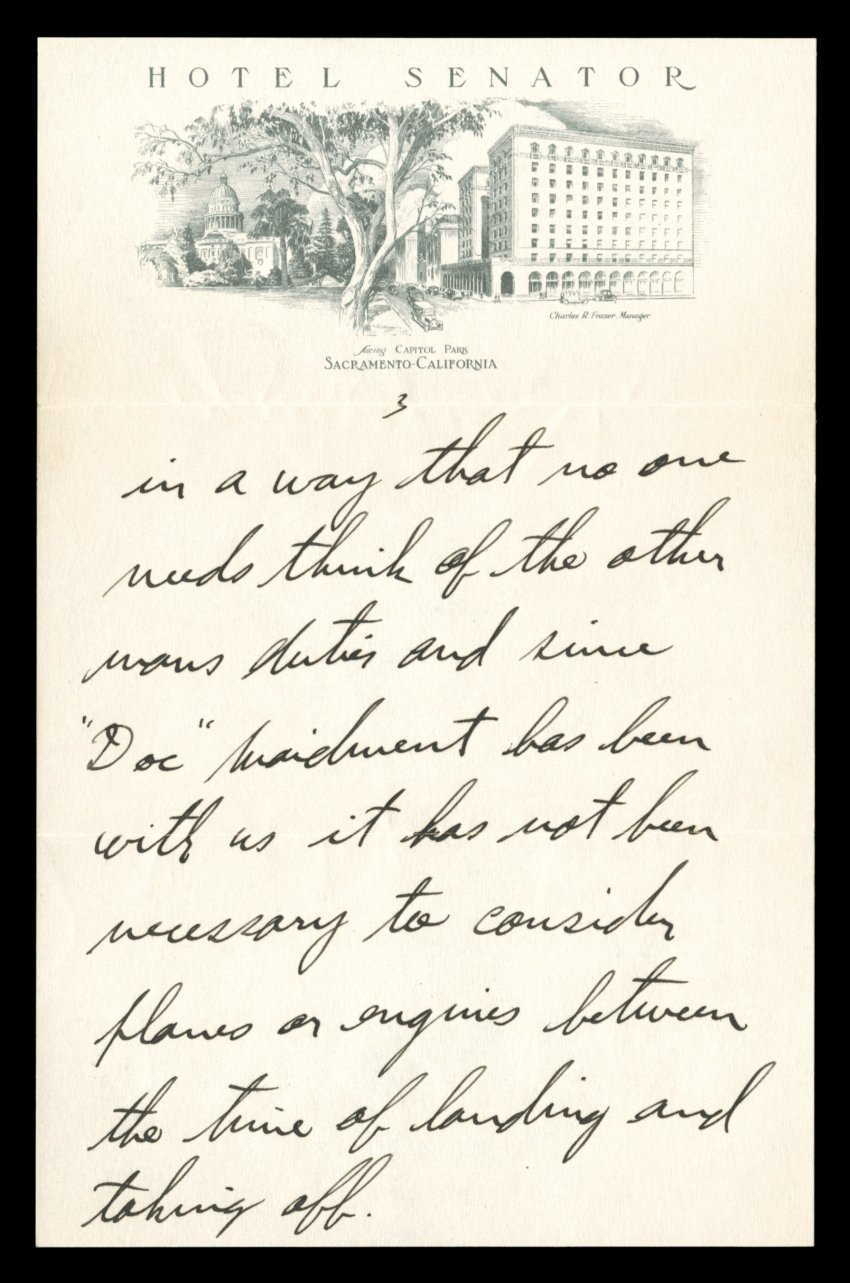 HOTEL SENATOR
Charles R. Fraser, Manager
facing CAPITOL PARK
SACRAMENTO-CALIFORNIA
3
in a way that no one
needs think of the other
mans duties and since
"Doc" Maidment has been
with us it has not been
necessary to consider
planes or engines between
the time of landing and
taking off.